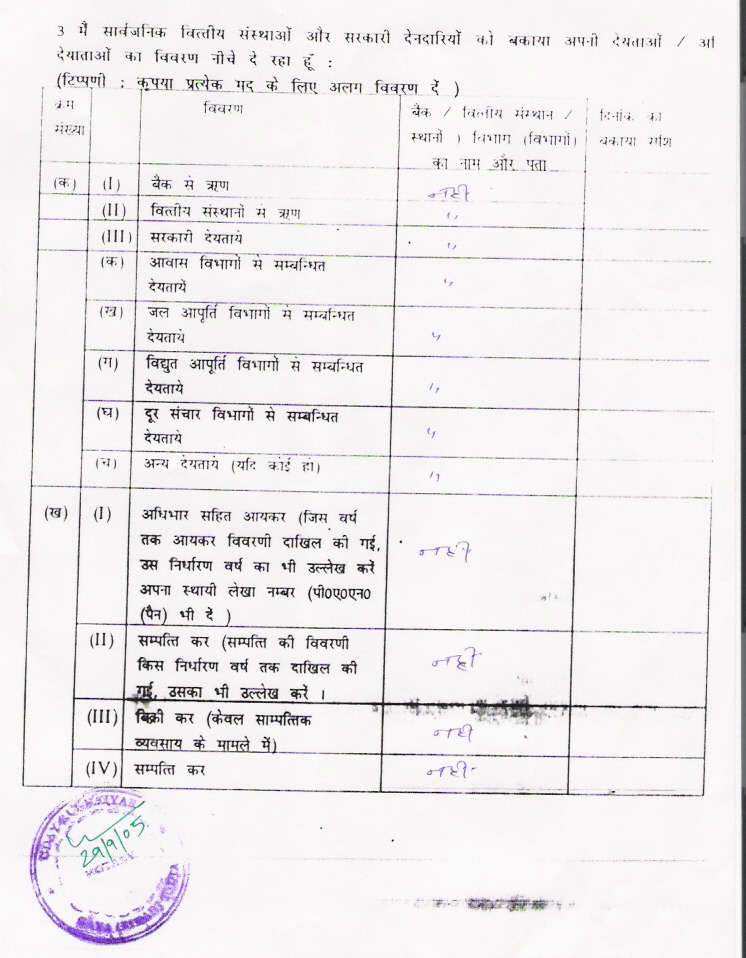 3 मैं सार्वजनिक वित्तीय संस्थाओं और सरकारी देनदारियों को बकाया अपनी देयताओं / अ
देयाताओं का विवरण नीचे दे रहा हूँ :
(टिप्पणी : कृपया प्रत्येक मद के लिए अलग विवरण दें )
क्रम संख्या
विवरण
बैंक / वित्तीय संस्थान /
स्थानों ) विभाग (विभागों)
का नाम और पता
दिनांक को
बकाया राशि
(क) (I) बैंक से ऋण नहीं
(II) वित्तीय संस्थानों से ऋण ,,
(III) सरकारी देयताये ,,
(क) आवास विभागों से सम्बन्धित
देयतायें ,,
(ख) जल आपूर्ति विभागों से सम्बन्धित
देयताये ,,
(ग) विद्युत आपूर्ति विभागों से सम्बन्धित
देयताये ,,
(घ) दूर संचार विभागों से सम्बन्धित
देयताये ,,
(च) अन्य देयताये (यदि कोई हो) ,,
(ख) (I) अधिभार सहित आयकर (जिस वर्ष
तक आयकर विवरणी दाखिल की गई,
उस निर्धारण वर्ष का भी उल्लेख करें नहीं
अपना स्थायी लेखा नम्बर (पी०ए०एन०
(पैन) भी दें )
(II) सम्पत्ति कर (सम्पत्ति की विवरणी
किस निर्धारण वर्ष तक दाखिल की नहीं
गई, उसका भी उल्लेख करें ।
(III) बिक्री कर (केवल साम्पत्तिक
व्यवसाय के मामले में) नहीं
(IV) सम्पत्ति कर नहीं
29/9/05